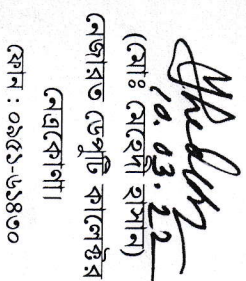 10.03.22
(মোঃ মেহেদী হাসান)
নেজারত ডেপুটি কালেক্টর
নেত্রকোণা।
ফোন : ০৯৫১-৬১৪৩০